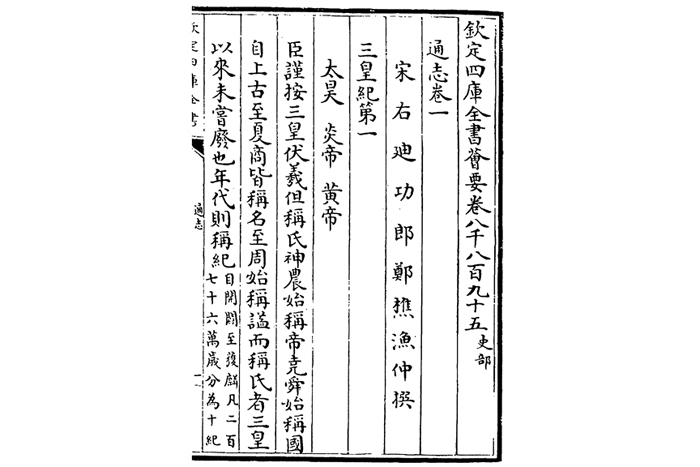 欽定四庫全書薈要卷八千八百九十五 史部
通志卷一
宋右迪功郎鄭樵漁仲撰
三皇紀第一
太昊 炎帝 黃帝
臣謹按三皇伏羲但稱氏神農始稱帝堯舜始稱國
自上古至夏商皆稱名至周始稱諡而稱氏者三皇
以來未嘗廢也年代則稱紀
自開闢至獲麟凡二百
七十六萬歲分為十紀
欽定四庫全書
通志
一